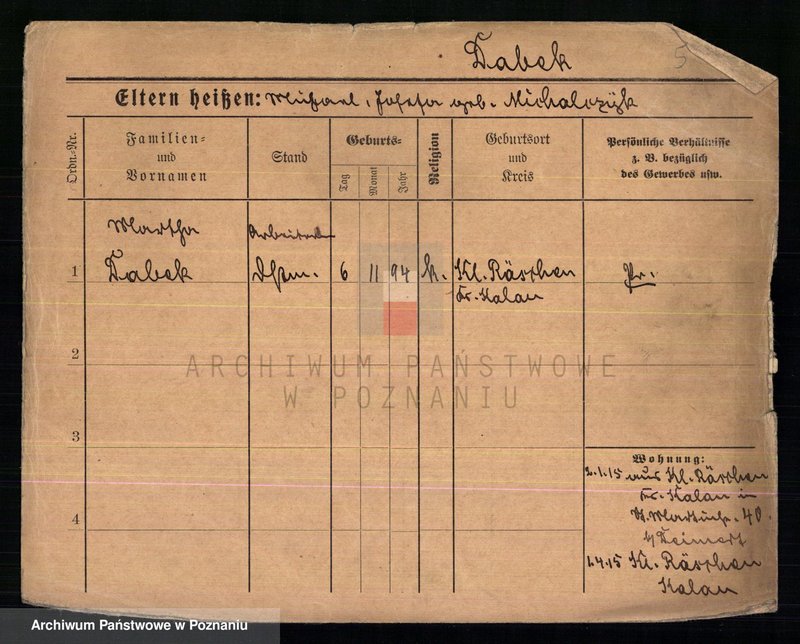 Dabek
5
Eltern heißen: Michael, Josefa geb. Michalczyk
Ordn.-Nr.
Familien- und Vornamen
Stand
Geburts-
Tag
Monat
Jahr
Religion
Geburtsort und Kreis
Persönliche Verhältnisse z. B. bezüglich des Gewerbes usw.
Martha
1 Dabek
Dstm. 6 11 94 k. Kl. Räschen Pr.
Kr. Kalau
2
ARCHIWUM PAŃSTWOWE
W POZNANIU
3
Wohnung:
2.1.15 aus Kl. Räschen
Kr. Kalau in
St. Martinstr. 40
b/
1.4.15 Kl. Räschen
Kalau
4
Archiwum Państwowe w Poznaniu